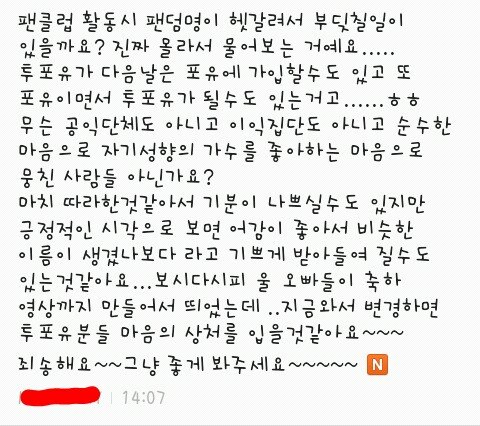 팬클럽 활동시 팬덤명이 헷갈려서 부딪칠일이
있을까요? 진짜 몰라서 물어보는 거예요.....
투포유가 다음날은 포유에 가입할수도 있고 또
포유이면서 투포유가 될수도 있는거고......ㅎㅎ
무슨 공익단체도 아니고 이익집단도 아니고 순수한
마음으로 자기성향의 가수를 좋아하는 마음으로
뭉친 사람들 아닌가요?
마치 따라한것같아서 기분이 나쁘실수도 있지만
긍정적인 시각으로 보면 어감이 좋아서 비슷한
이름이 생겼나보다 라고 기쁘게 받아들여 질수도
있는것같아요...보시다시피 울 오빠들이 축하
영상까지 만들어서 띄었는데 ..지금와서 변경하면
투포유분들 마음의 상처를 입을것같아요~~~
죄송해요~~그냥 좋게 봐주세요~~~~~ N
14:07